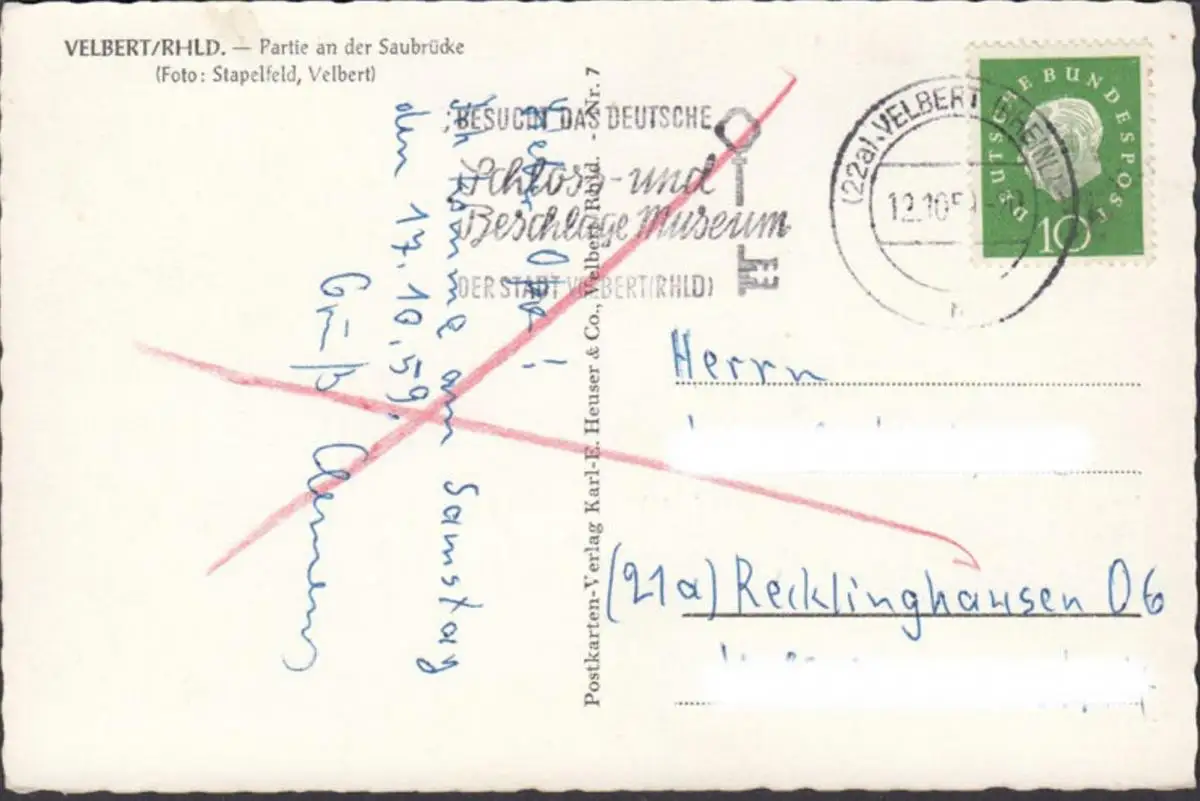 VELBERT/RHLD. — Partie an der Saubrücke
(Foto: Stapelfeld, Velbert)
BESUCHT DAS DEUTSCHE
Schloss- und
Beschläge Museum
DER STADT VELBERT(RHLD)
(22a) VELBERT (RHEINL)
12.10.59
DEUTSCHE BUNDESPOST
10
Lieber Opa!
Ich komme am Samstag
den 17.10.59.
Gruß Clemens
Postkarten-Verlag Karl-E. Heuser & Co., Velbert/Rhld. - Nr. 7
Herrn
(21a) Recklinghausen 06